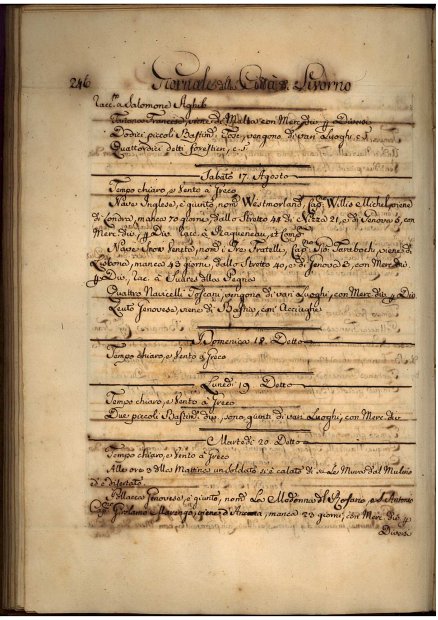 246
Giornale della Città di Livorno
racc.ta a Salomone Aghib
Francesco, viene di Malta con Merc. div. p. Diversi
Dodici piccoli Bastim.ti Tosc. vengono di vari Luoghi, c.s.
Quattordici detti forestieri, c.s.
Sabato 17. Agosto
Tempo chiaro, e Vento a Greco
Nave Inglese, è giunta, nom.ta Westmorland, Cap. Willis Michel, viene
di Londra, manca 70 giorni, dallo Stretto 48 di Nizza 21, e di Genova 6, con
Merc. div. p. Div. racc. a et Comp.
Nave Veneta, nom. i Tre Fratelli, Cap. viene di
Lisbona, manca 43 giorni, dallo Stretto 40, e di Genova 2, con Merc. div.
p. Div. rac. a
Quattro Navicelli Toscani, vengono di vari Luoghi, con Merc. div. p. Div.
Leuto Genovese, viene di Bastia, con Acciughe
Domenica 18. Detto
Tempo chiaro, e Vento a Greco
Lunedì 19. Detto
Tempo chiaro, e Vento a Greco
Due piccoli Bastim. div. sono giunti di vari Luoghi, con Merc. div.
Martedì 20. Detto
Tempo chiaro, e Vento a Greco
Alle ore 3 della Mattina un Soldato si è calato di su le Mura dal Mulino
ed è disertato.
Pollacca Genovese, è giunta, nom. La Madonna del Rosario, e S. Antonio
Cap. Girolamo viene d'Ancona, manca 23 giorni, con Merc. div. p.
Diversi